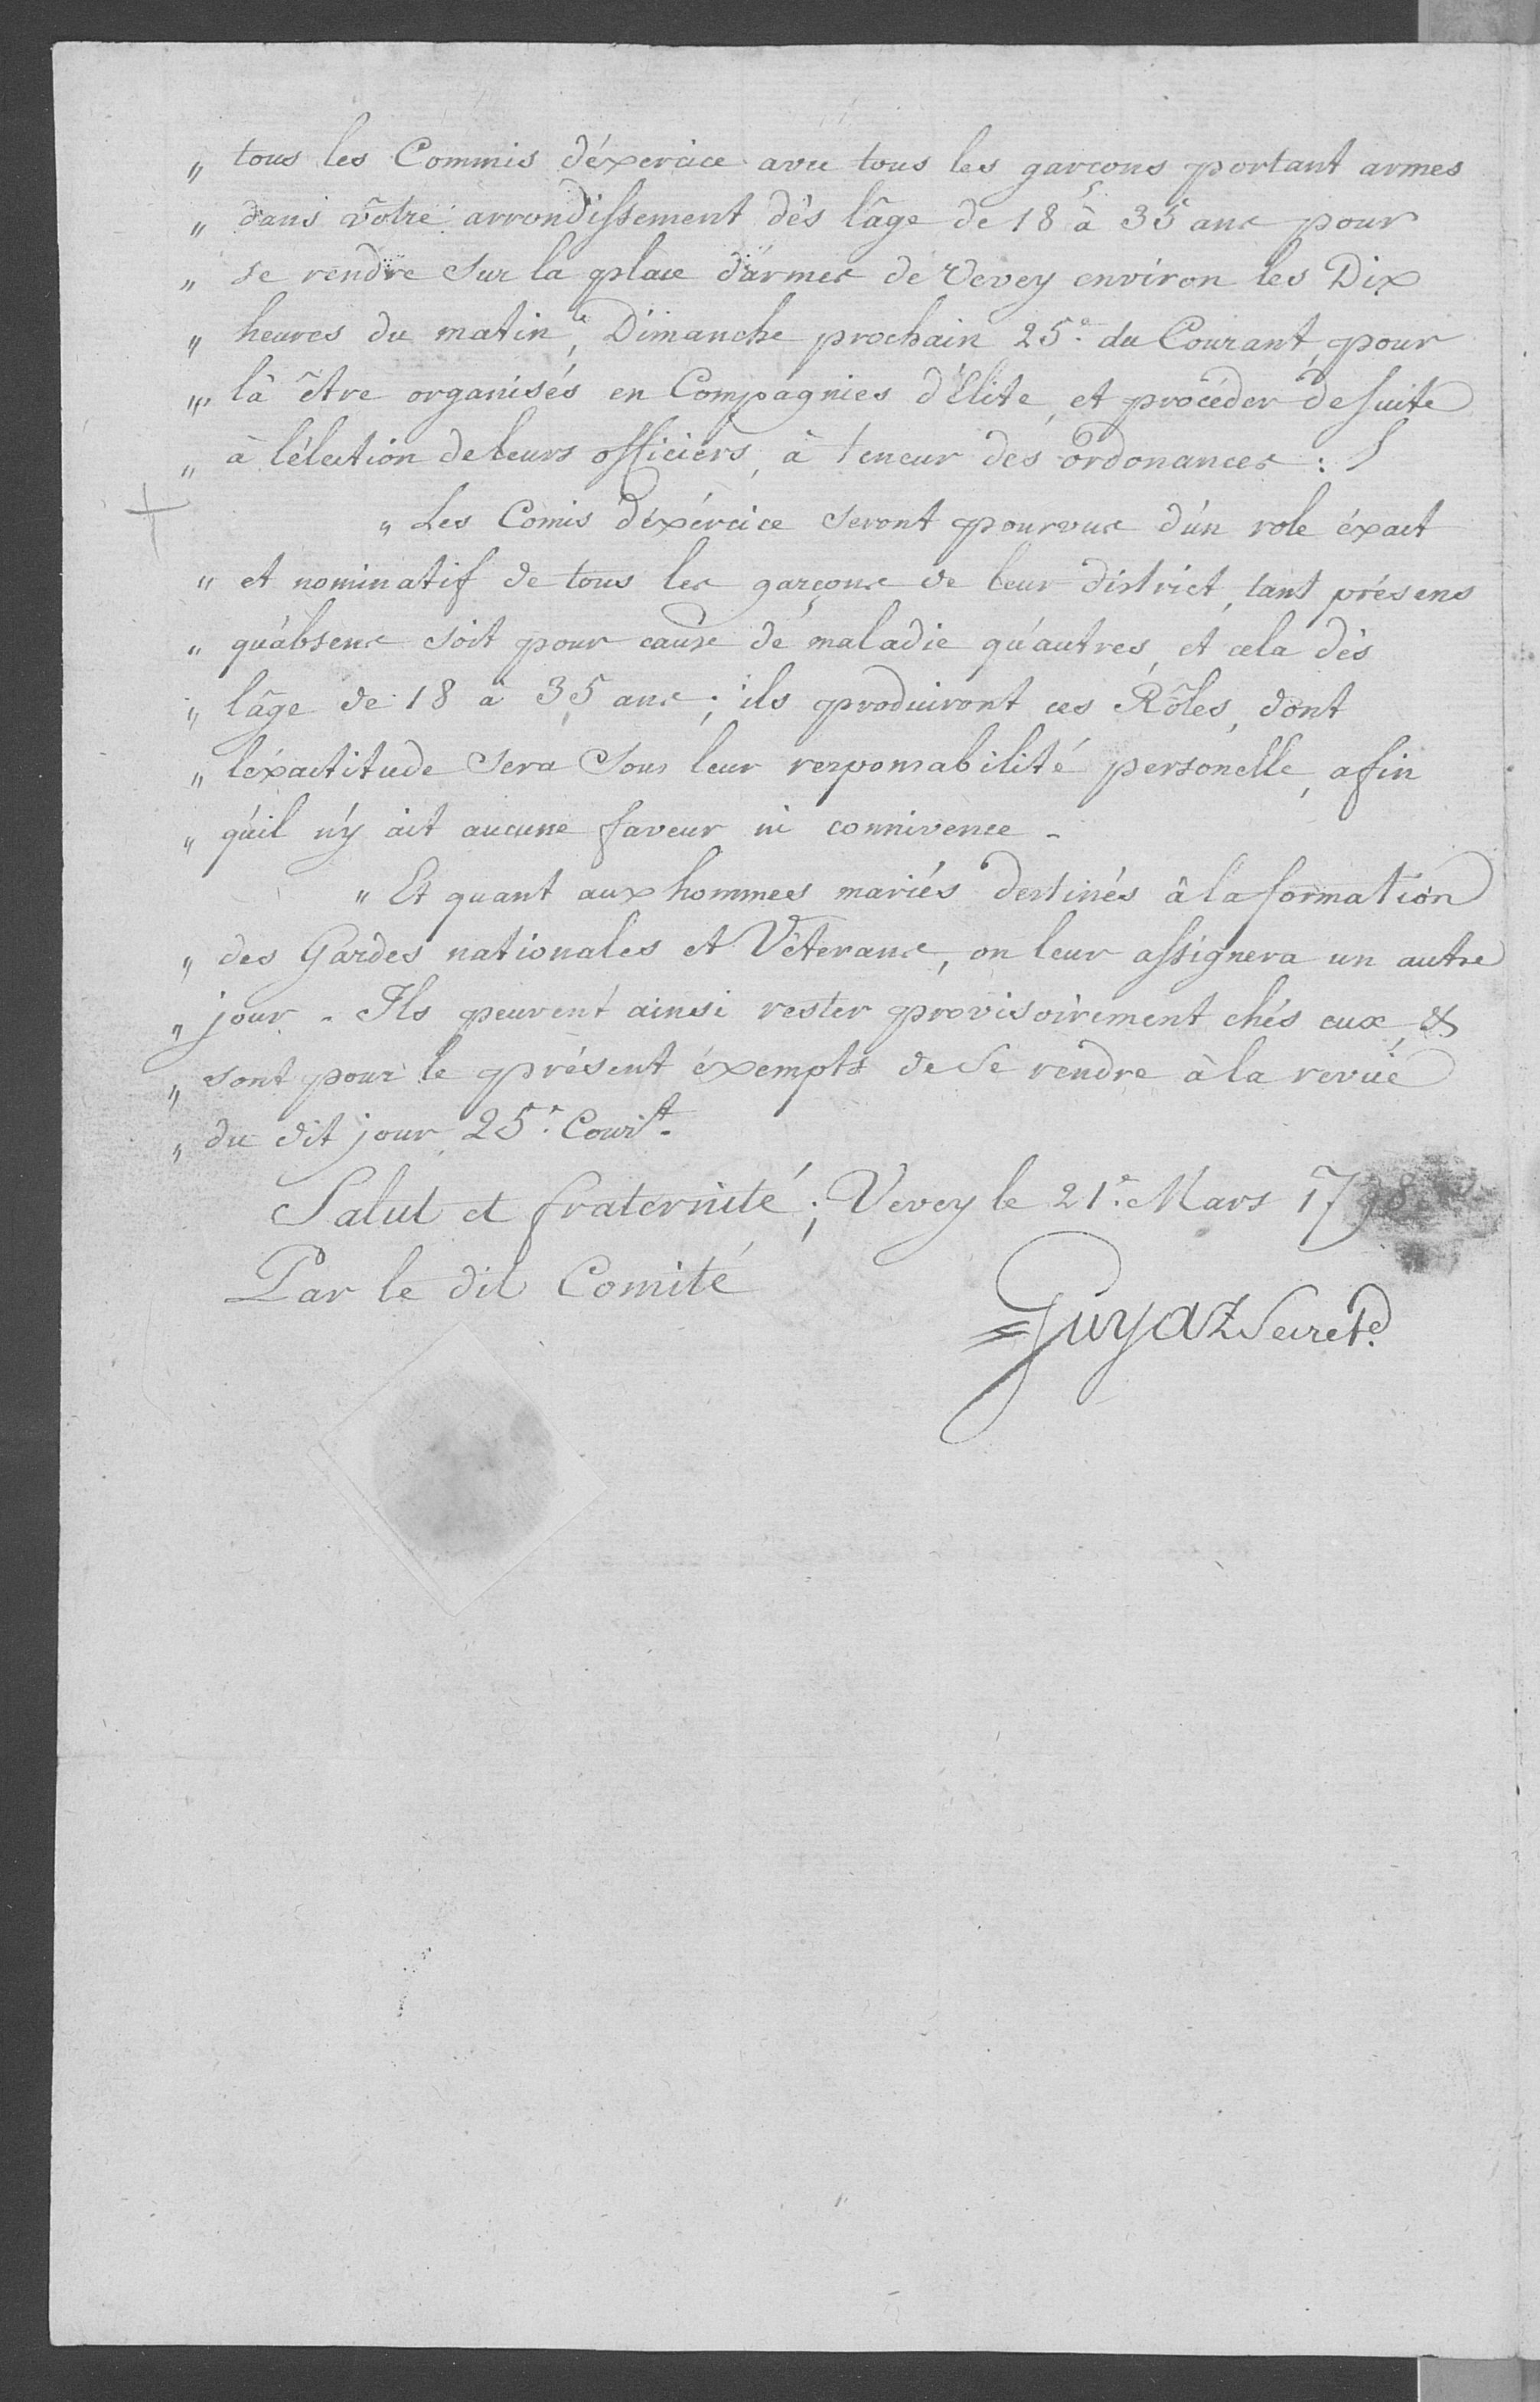 „ tous les Commis d'éxercice avec tous les garçons portant armes
„ dans vôtre arrondissement dès l'âge de 18 à 35 ans pour
„ se rendre sur la place d'armes de Vevey environ les Dix
„ heures du matin, le Dimanche prochain 25.e du Courant, pour
„ là être organisés en Compagnies d'Elite, et procéder de suite
„ à l'élection de leurs officiers, à teneur des ordonances :
„ Les Comis d'éxércice seront pourvus d'un role éxact
„ et nominatif de tous les garçons de leur district, tant présens
„ qu'absens soit pour cause de maladie qu'autres, et cela dès
„ l'âge de 18 à 35 ans ; ils produiront ces Rôles, dont
„ l'éxactitude sera sous leur responsabilité personelle, afin
„ qu'il n'y ait aucune faveur ni connivence -
„ Et quant aux hommes mariés destinés à la formation
„ des Gardes nationales et Véterans, on leur assignera un autre
„ jour - Ils peuvent ainsi rester provisoirement chés eux, &
„ sont pour le présent éxempts de se rendre à la revüe
„ du dit jour 25.e Cour.t -
Salut et fraternité ; Vevey le 21.e Mars 1798
Par le dit Comité
Guyaz Secret.e